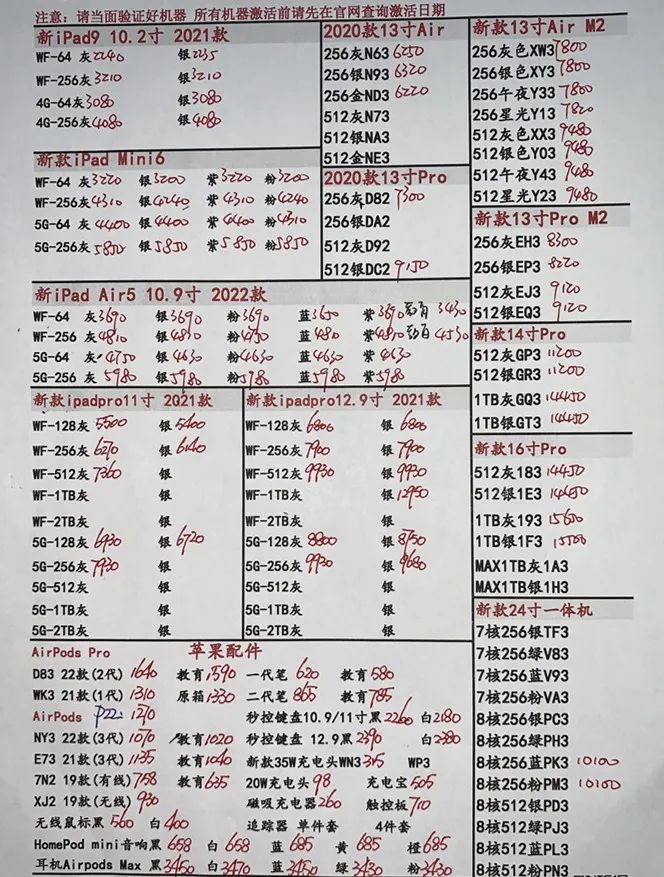 注意: 请当面验证好机器 所有机器激活前请先在官网查询激活日期
新iPad9 10.2寸 2021款
WF-64 灰2240 银2235
WF-256灰3210 银3210
4G-64灰3080 银3080
4G-256灰4080 银4080
新款iPad Mini6
WF-64 灰3220 银3200 紫3220 粉3200
WF-256灰4310 银4240 紫4310 粉4240
5G-64 灰4400 银4400 紫4400 粉4310
5G-256灰5850 银5850 紫5850 粉5850
2020款13寸Air
256灰N63 6250
256银N93 6320
256金ND3 6220
512灰N73
512银NA3
512金NE3
2020款13寸Pro
256灰D82 7300
256银DA2
512灰D92
512银DC2 9150
新款13寸Air M2
256灰色XW3 7800
256银色XY3 7800
256午夜Y33 7800
256星光Y13 7820
512灰色XX3 9480
512银色Y03 9480
512午夜Y43 9480
512星光Y23 9480
新款13寸Pro M2
256灰EH3 8300
256银EP3 8220
512灰EJ3 9120
512银EQ3 9120
新款14寸Pro
512灰GP3 11200
512银GR3 11200
1TB灰GQ3 14450
1TB银GT3 14450
新款16寸Pro
512灰183 14450
512银1E3 14450
1TB灰193 15600
1TB银1F3 15500
MAX1TB灰1A3
MAX1TB银1H3
新款24寸一体机
7核256银TF3
7核256绿V83
7核256蓝V93
7核256粉VA3
8核256银PC3
8核256绿PH3
8核256蓝PK3 10100
8核256粉PM3 10100
8核512银PD3
8核512绿PJ3
8核512蓝PL3
8核512粉PN3
新iPad Air5 10.9寸 2022款
WF-64 灰3690 银3690 粉3690 蓝3650 紫3690 3430
WF-256 灰4810 银4830 粉4750 蓝4810 紫4810 4530
5G-64 灰4750 银4630 粉4630 蓝4630 紫4630
5G-256 灰5980 银5980 粉5980 蓝5980 紫5980
新款ipadpro11寸 2021款
WF-128灰5500 银5400
WF-256灰6270 银6140
WF-512灰7360 银
WF-1TB灰 银
WF-2TB灰 银
5G-128灰6930 银6720
5G-256灰7930 银
5G-512灰 银
5G-1TB灰 银
5G-2TB灰 银
新款ipadpro12.9寸 2021款
WF-128灰6800 银6800
WF-256灰7900 银7900
WF-512灰9930 银9930
WF-1TB灰 银12950
WF-2TB灰 银
5G-128灰8800 银8750
5G-256灰9930 银9680
5G-512灰 银
5G-1TB灰 银
5G-2TB灰 银
AirPods Pro 苹果配件
D83 22款(2代) 1640 教育1590 一代笔 620 教育580
WK3 21款(1代) 1310 原箱1330 二代笔 865 教育785
AirPods P22: 1270 秒控键盘10.9/11寸黑2260 白2180
NY3 22款(3代) 1070 教育1020 秒控键盘 12.9黑2390 白2380
E73 21款(3代) 1135 教育1040 新款35W充电头WN3 315 WP3
7N2 19款(有线) 758 教育635 20W充电头98 充电宝505
XJ2 19款(无线) 930 磁吸充电器260 触控板710
无线鼠标黑 560 白400 追踪器 单件套 4件套
HomePod mini音响黑658 白658 蓝685 黄685 橙685
耳机Airpods Max 黑3450 白3470 蓝3450 绿3430 粉3430